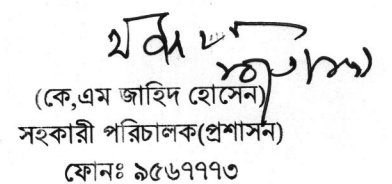 (কে,এম জাহিদ হোসেন)
সহকারী পরিচালক(প্রশাসন)
ফোনঃ ৯৫৬৭৭৭৩